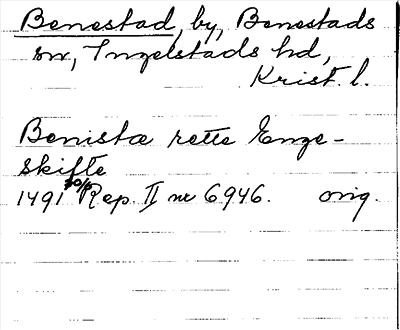 Benestad, by, Benestads
sn, Ingelstads hd,
Krist. l.
Benistæ rette Enge-
skifte
1491 Rep. II nr 6946. orig.